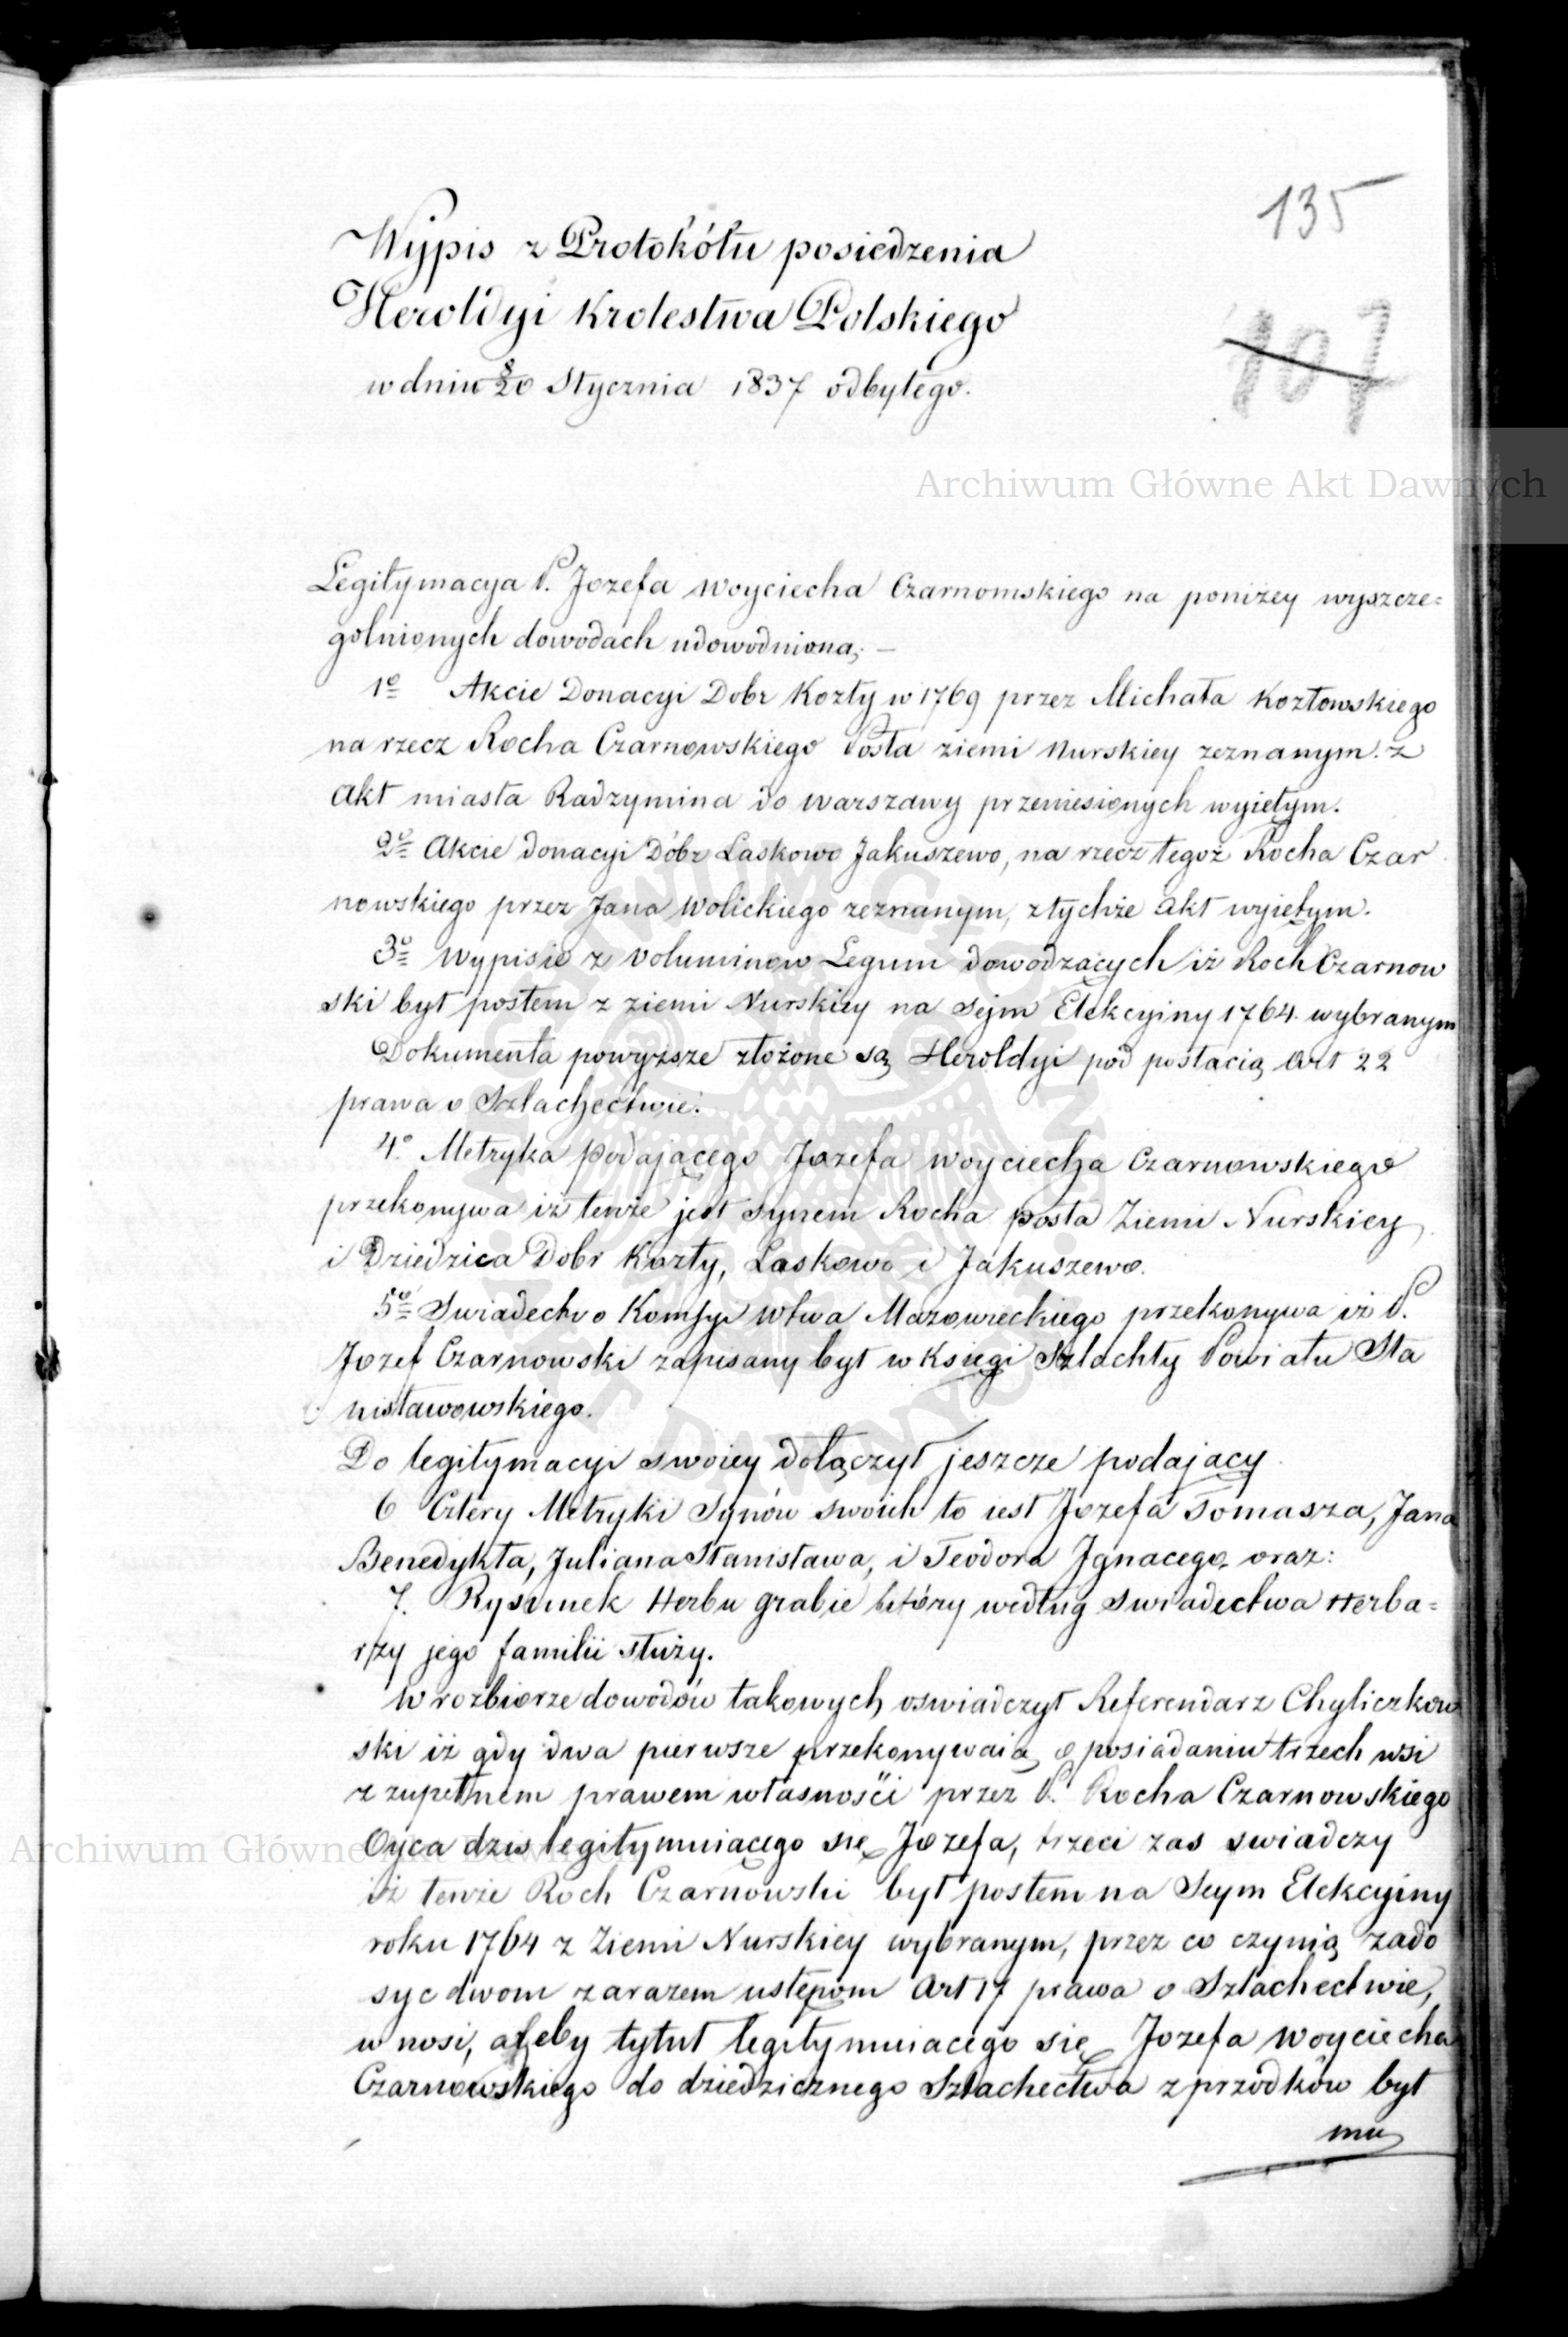 135
Wypis z Protokółu posiedzenia
Heroldyi Krolestwa Polskiego
w dniu 8/20 Stycznia 1837 odbytego.
107
Archiwum Główne Akt Dawnych
Legitymacya P. Jozefa Woyciecha Czarnomskiego na poniżey wyszcze=
golnionych dowodach udowodniona; —
1º Akcie Donacyi Dobr Kozły w 1769 przez Michała Kozłowskiego
na rzecz Rocha Czarnowskiego Posła ziemi Nurskiey zeznanym. z
Akt miasta Radzymina do Warszawy przeniesionych wyiętym.
2º Akcie donacyi Dóbr Laskowo Jakuszewo, na rzecz tegoż Rocha Czar
nowskiego przez Jana Wolickiego zeznanym, z tychże Akt wyiętym.
3º Wypisie z Voluminow Legum dowodzących iż Roch Czarnow
ski był posłem z ziemi Nurskiey na Sejm Elekcyiny 1764. wybranym
Dokumenta powyższe złożone są Heroldyi pod postacią Art 22
prawa o Szlachectwie.
4º. Metryka podającego Jozefa Woyciecha Czarnowskiego
przekonywa iż tenże jest synem Rocha posła Ziemi Nurskiey
i Dziedzica Dobr Kozły, Laskowo i Jakuszewo.
5º Swiadectvo Komsyi Wtwa Mazowieckiego przekonywa iż P.
Jozef Czarnowski zapisany był w Księgi Szlachty Powiatu Sta
nisławowskiego.
Do legitymacyi swoiey dołączył jeszcze podający
6 Cztery Metryki Synów swoich to iest Jozefa Tomasza, Jana
Benedykta, Juliana Stanisława, i Teodora Ignacego, oraz:
7. Rysunek Herbu grabie który według swiadectwa Herba=
rzy jego familii służy.
W rozbiorze dowodów takowych oswiadczył Referendarz Chyliczkow
ski iż gdy dwa pierwsze przekonywaią o posiadaniu trzech wsi
z zupełnem prawem własności przez P. Rocha Czarnowskiego
Oyca dzis legitymuiącego się Jozefa, trzeci zas swiadczy
iż tenże Roch Czarnowski był posłem na Seym Elekcyiny
roku 1764 z Ziemi Nurskiey wybranym, przez co czynią zado
syc dwom zarazem ustępom Art 17 prawa o Szlachectwie,
wnosi, ażeby tytuł legitymuiącego się Jozefa Woyciecha
Czarnowskiego do dziedzicznego Szlachectwa z przodków był
mu